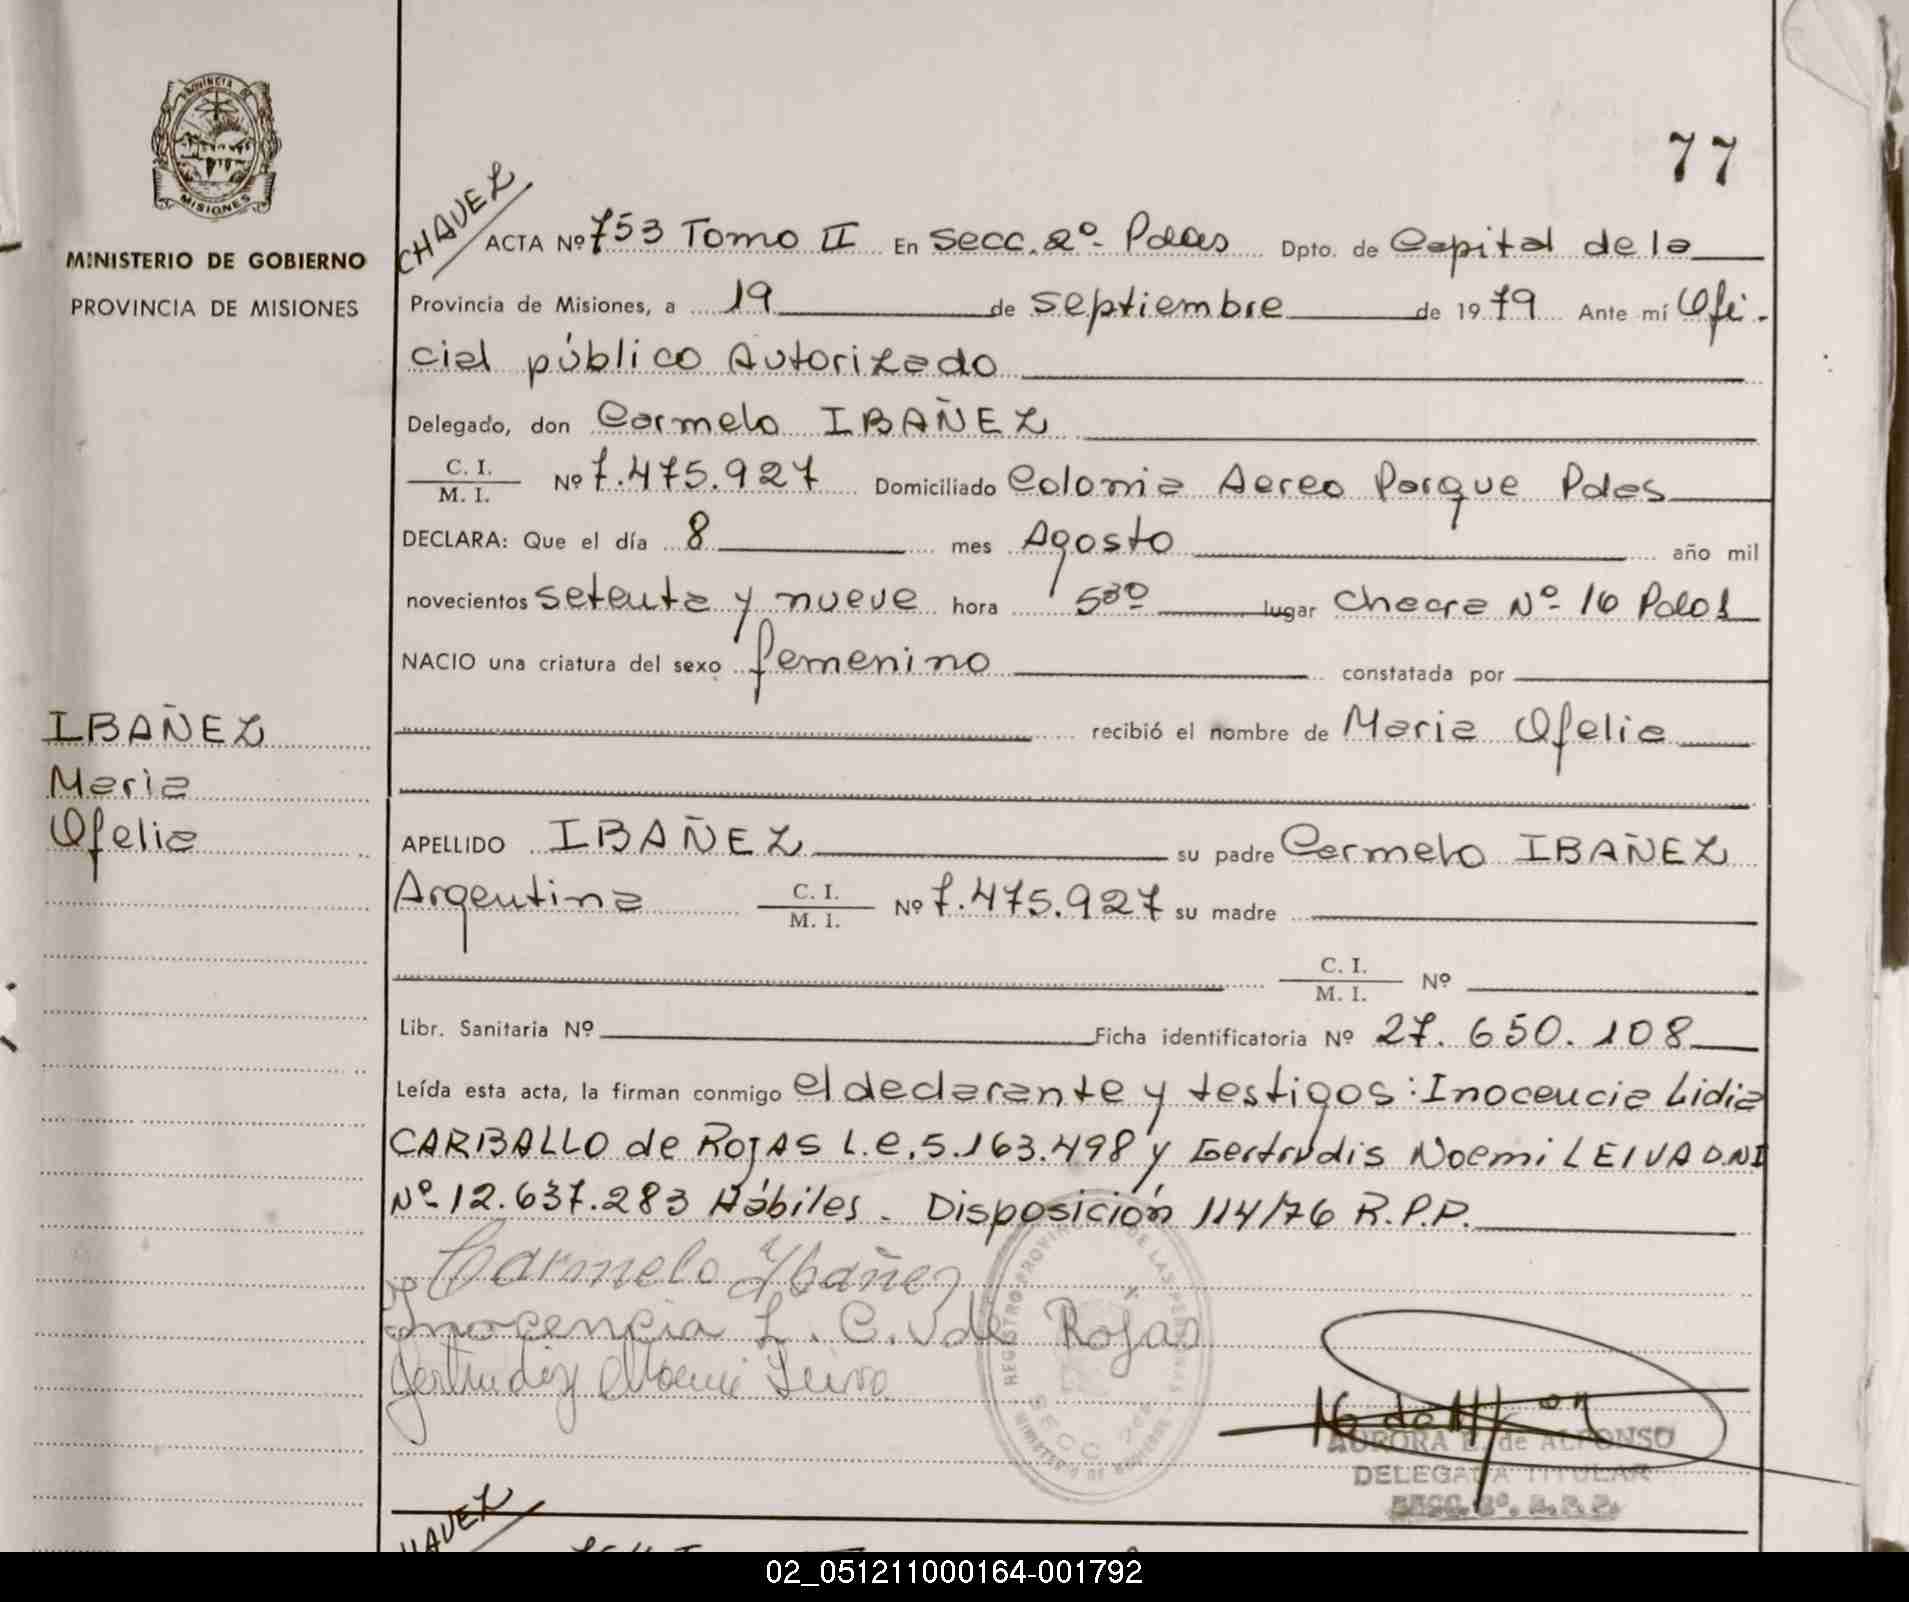 PROVINCIA DE
MISIONES
MINISTERIO DE GOBIERNO
PROVINCIA DE MISIONES
77
CHAVEZ
ACTA Nº 753 Tomo II En Secc. 2º- Pdas Dpto. de Capital de la
Provincia de Misiones, a 19 de septiembre de 1979 Ante mí Ofi-
cial público Autorizado
Delegado, don Carmelo IBAÑEZ
C. I.
M. I. Nº 7.475.927 Domiciliado Colonia Aereo Parque Pdas
DECLARA: Que el día 8 mes Agosto año mil
novecientos setenta y nueve hora 5 30 lugar Chacra Nº- 16 Pdas
NACIO una criatura del sexo femenino constatada por
recibió el nombre de Maria Ofelia
IBAÑEZ
Maria
Ofelia
APELLIDO IBAÑEZ su padre Carmelo IBAÑEZ
Argentina C. I.
M. I. Nº 7.475.927 su madre
C. I.
M. I. Nº
Libr. Sanitaria Nº Ficha identificatoria Nº 27.650.108
Leída esta acta, la firman conmigo el declarante y testigos: Inocencia Lidia
CARBALLO de ROJAS L.e.5.163.498 y Gertrudis Noemi LEIVA D.NI
Nº-12.637.283 Hábiles. Disposición 114/76 R.P.P.
Carmelo Ybañez
Inocencia L. C. de Rojas
Gertrudiz Noemi Leiva
REGISTRO PROVINCIAL DE LAS PERSONAS
SECC. 2da
MINISTERIO DE GOBIERNO
AURORA E. de ALFONSO
DELEGADA TITULAR
SECC. 2º. R.P.P.
HAVEZ
02_051211000164-001792